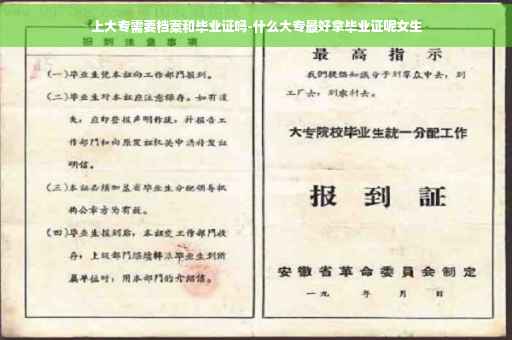 上大专需要档案和毕业证吗-什么大专最好拿毕业证呢女生
报到注意事项
(一)毕业生凭本证向工作部门报到。
(二)毕业生对本证应注意保存。如有遗
失,应即登报声明作废,并报告工
作部门和向原发证机关申请补发证
明信。
(三)本证必须加盖省毕业生分配领导机
构公章方为有效。
(四)毕业生报到后,本证交工作部门收
存;上级部门
毕业生到所
属单位时,用本部门的介绍信。
最高指示
我们提倡知识分子到群众中去,到
工厂去,到农村去。
大专院校毕业生统一分配工作
报到证
安徽省革命委员会制定
一九 年 月 日